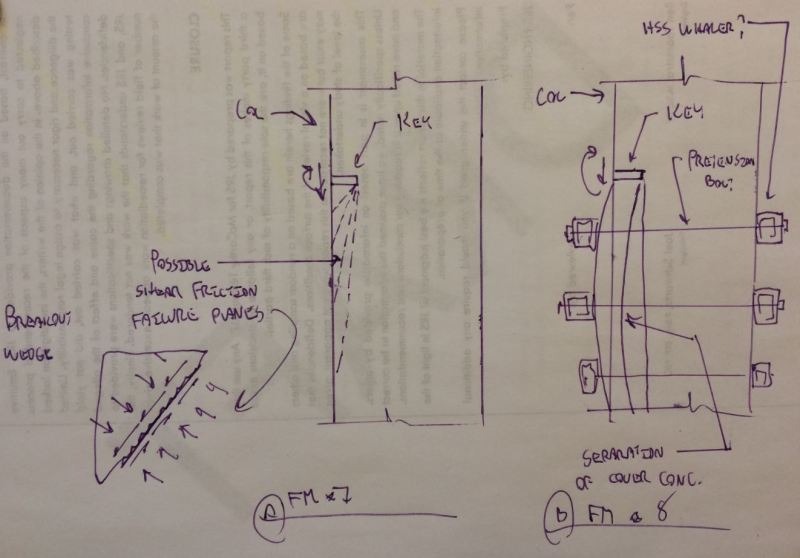 HSS WHALER?
COL
KEY
COL
KEY
PRETENSION
BOLT
POSSIBLE
SHEAR FRICTION
FAILURE PLANES
BREAKOUT
WEDGE
SEPARATION
OF COVER CONC.
A FM
B FM 8